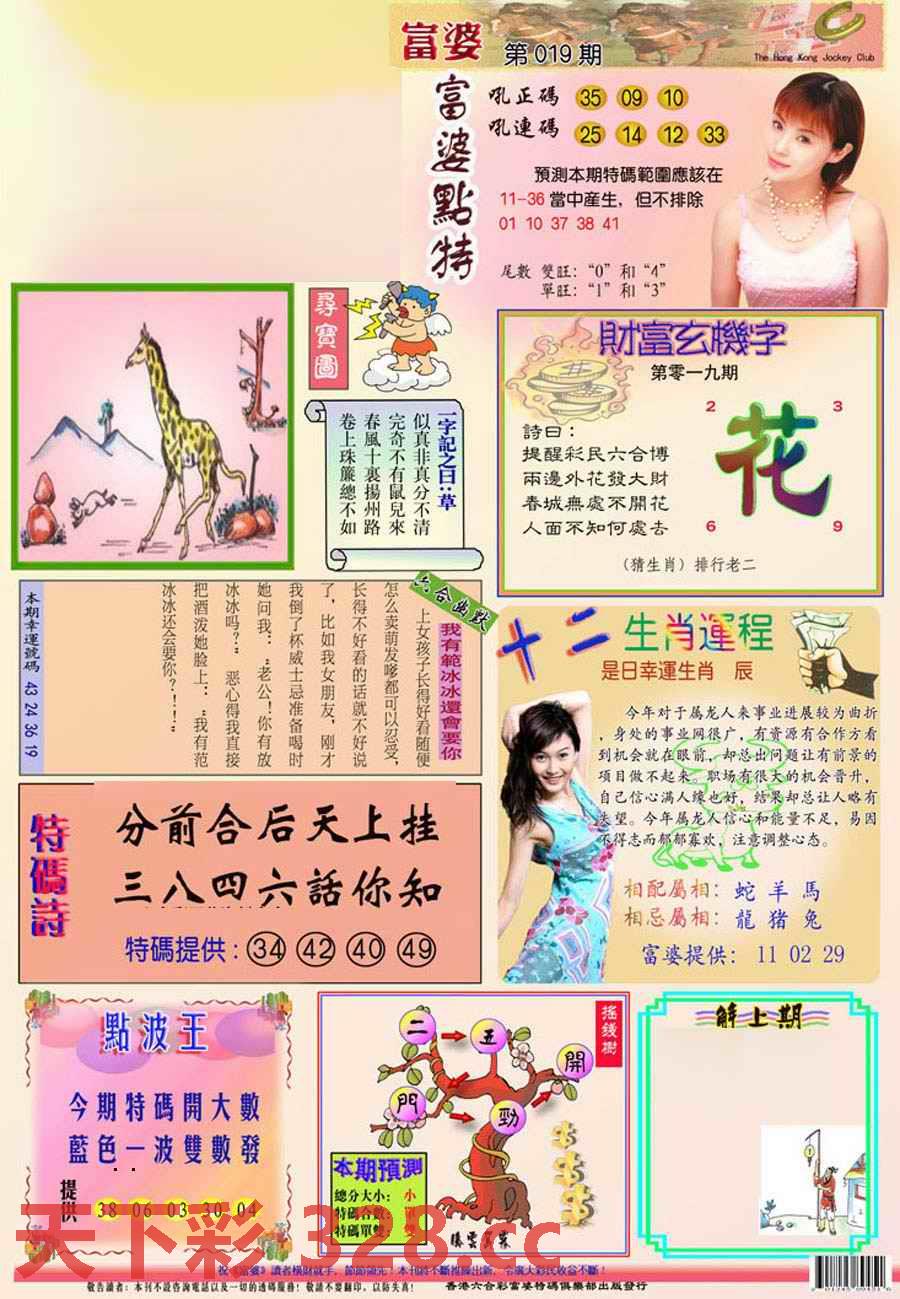 富婆 第019期
The Hong Kong Jockey Club
富婆點特
吼正碼 35 09 10
吼連碼 25 14 12 33
預測本期特碼範圍應該在
11-36 當中産生，但不排除
01 10 37 38 41
尾數 雙旺：“0”和“4”
單旺：“1”和“3”
尋寶圖
一字記之曰：草
似真非真分不清
完奇不有鼠兒來
春風十裏揚州路
卷上珠簾總不如
財富玄機字
第零一九期
詩曰：
提醒彩民六合博
兩邊外花發大財
春城無處不開花
人面不知何處去
2 3
花
6 9
（猜生肖）排行老二
六合幽默
我有範冰冰還會要你
上女孩子长得好看随便
怎么卖萌发嗲都可以忍受，
长得不好看的话就不好说
了，比如我女朋友，刚才
我倒了杯威士忌准备喝时
她问我：“老公！你有放
冰冰吗？” 恶心得我直接
把酒泼她脸上：“我有范
冰冰还会要你？！！”
本期幸運號碼 43 24 36 19
十二生肖運程
是日幸運生肖 辰
今年对于属龙人来事业进展较为曲折
，身处的事业网很广，有资源有合作方看
到机会就在眼前，却总出问题让有前景的
项目做不起来。职场有很大的机会晋升，
自己信心满人缘也好，结果却总让人略有
失望。今年属龙人信心和能量不足，易因
不得志而郁郁寡欢，注意调整心态。
相配屬相：蛇 羊 馬
相忌屬相：龍 猪 兔
富婆提供：11 02 29
特碼詩
分前合后天上挂
三八四六話你知
特碼提供：34 42 40 49
點波王
今期特碼開大數
藍色一波雙數發
提供 38 06 03 30 04
搖錢樹
二 五 開 門 勁
本期預測
總分大小：小
特碼合數：單
特碼單雙：雙
解上期
天下彩 328.cc
祝《富婆》讀者橫財就手，節節領先！本刊將不斷推陳出新，令廣大彩民收益不斷！
敬告讀者：本刊不設咨詢電話以及一切的透碼服務！敬請不要翻印，以防失真！
香港六合彩富婆特碼俱樂部出版發行